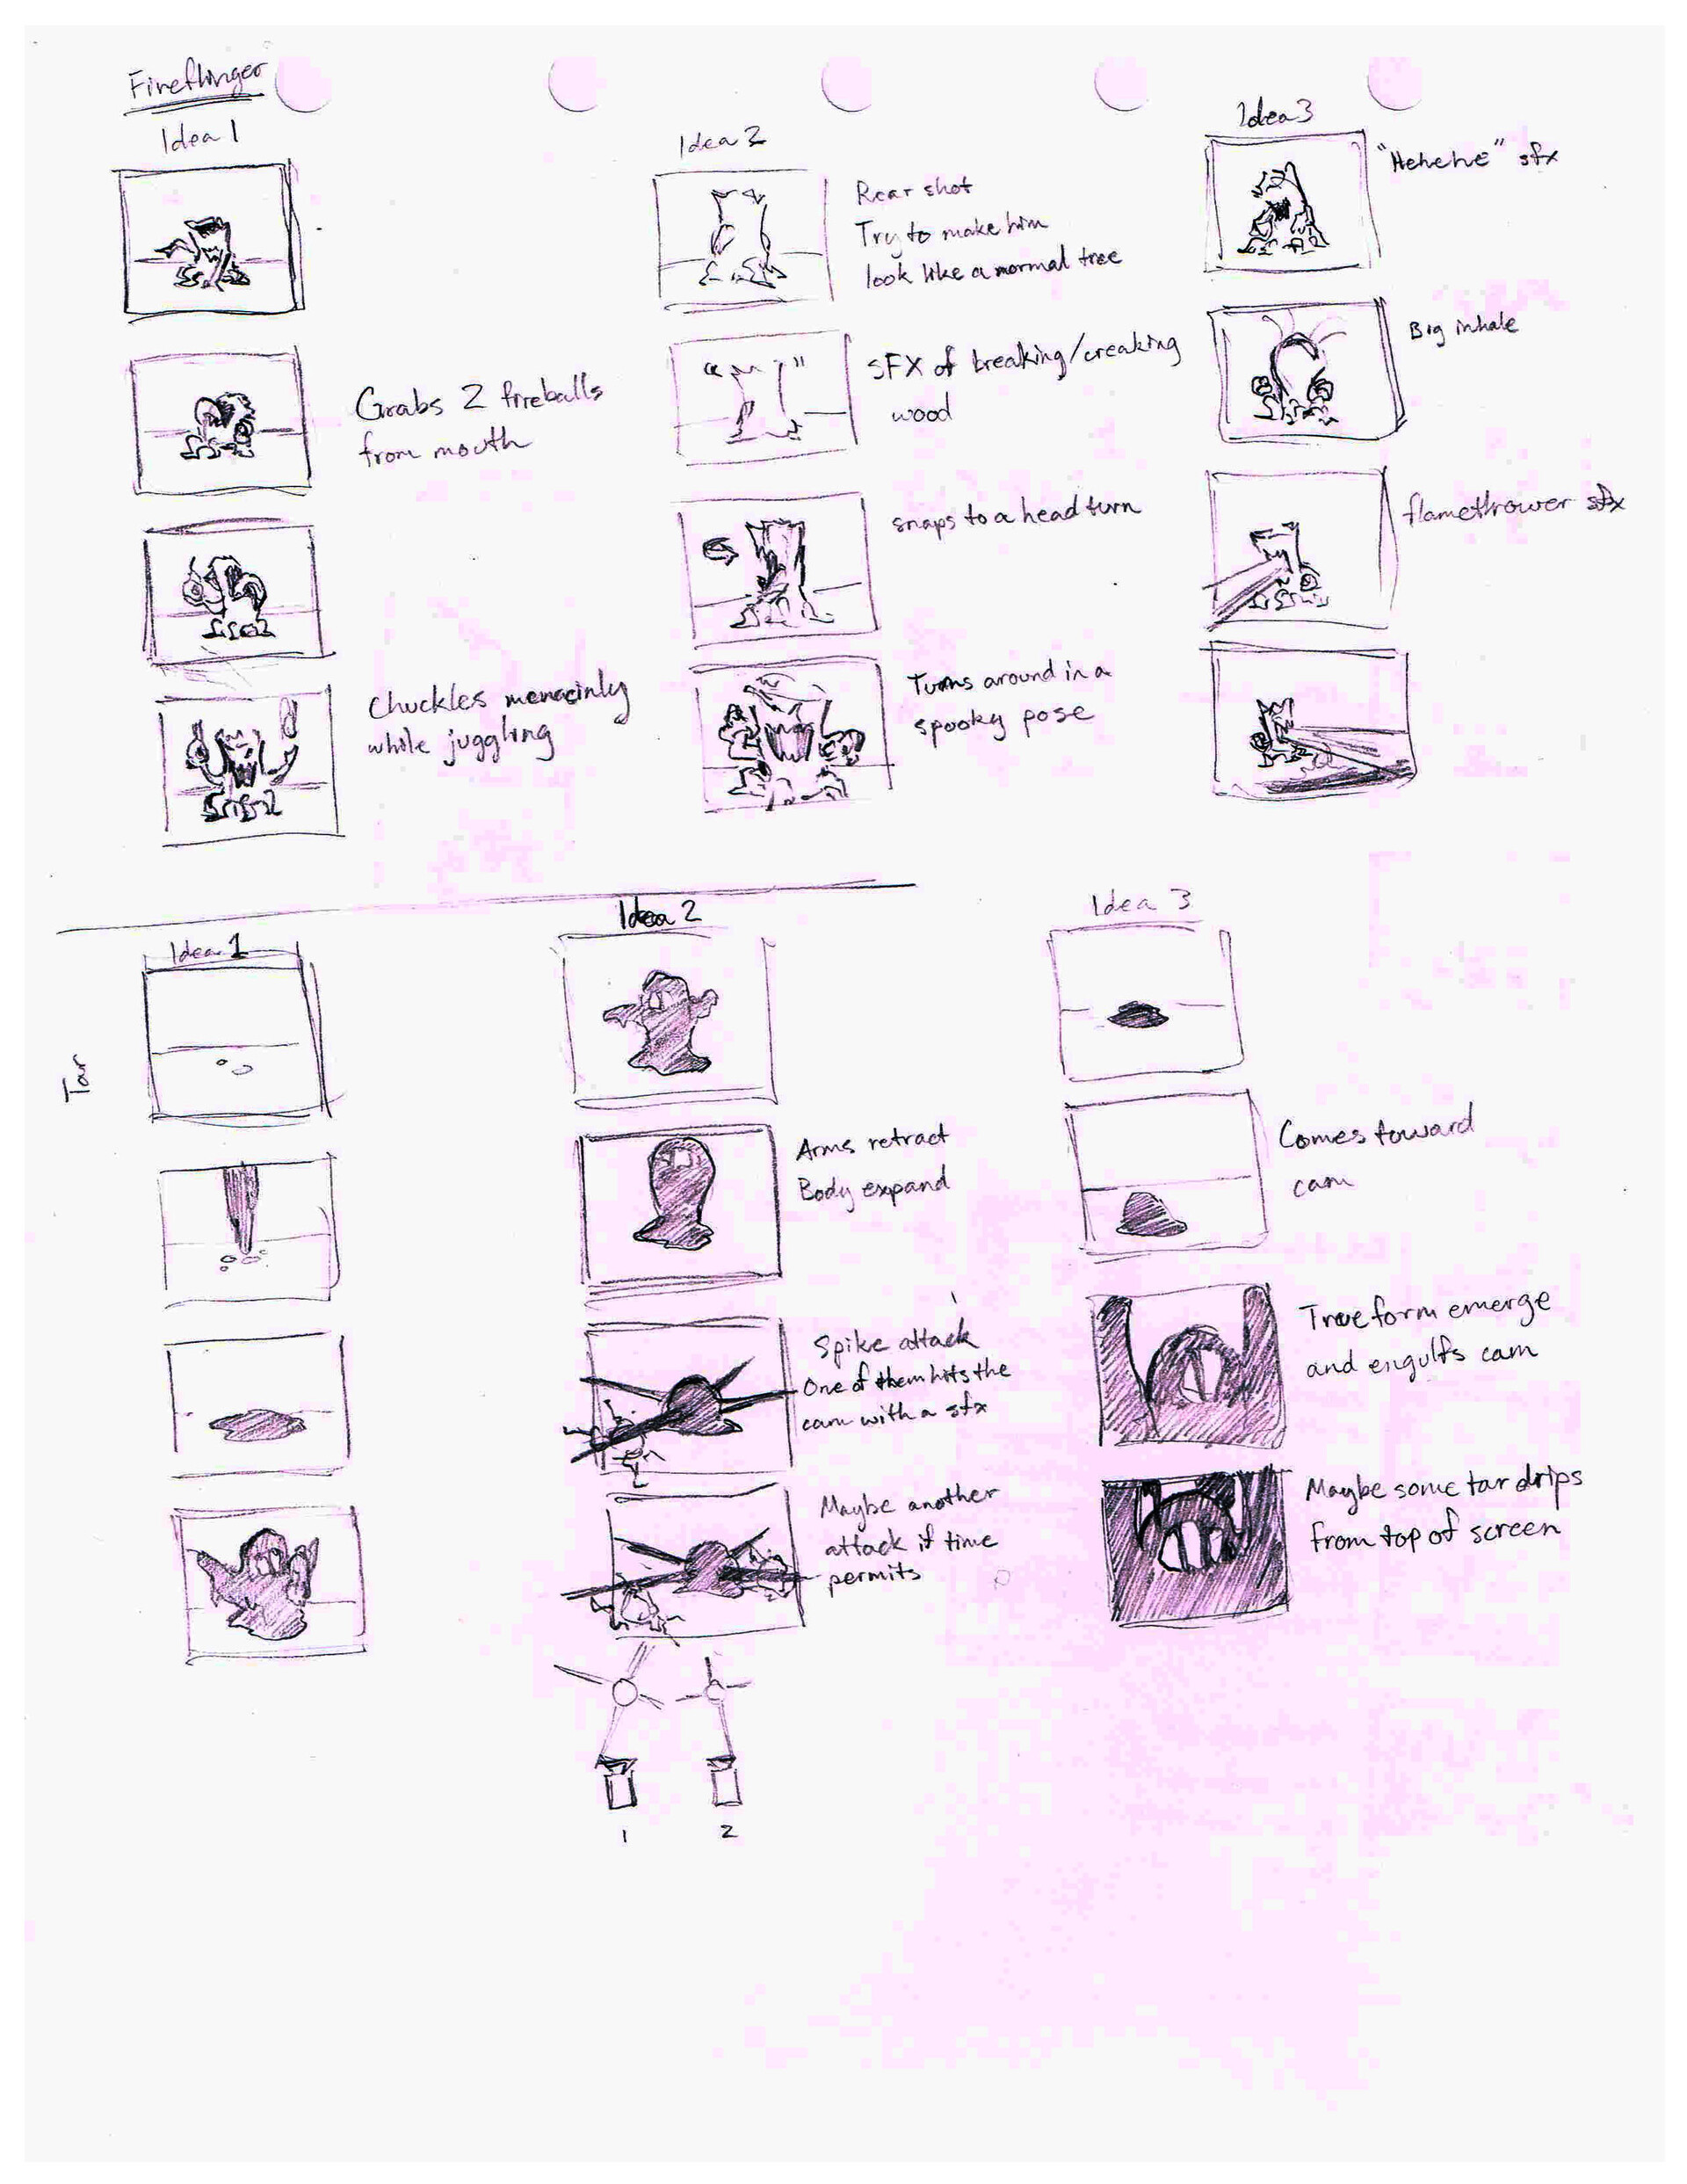 Fireflinger
Idea 1
Grabs 2 fireballs
from mouth
Chuckles menacinly
while juggling
Idea 2
Rear shot
Try to make him
look like a normal tree
SFX of breaking/creaking
wood
snaps to a head turn
Turns around in a
spooky pose
Idea 3
"Hehehe" sfx
Big inhale
flamethrower sfx
Tar
Idea 1
Idea 2
Arms retract
Body expand
Spike attack
One of them hits the
cam with a sfx
Maybe another
attack if time
permits
1
2
Idea 3
Comes toward
cam
True form emerge
and engulfs cam
Maybe some tar drips
from top of screen